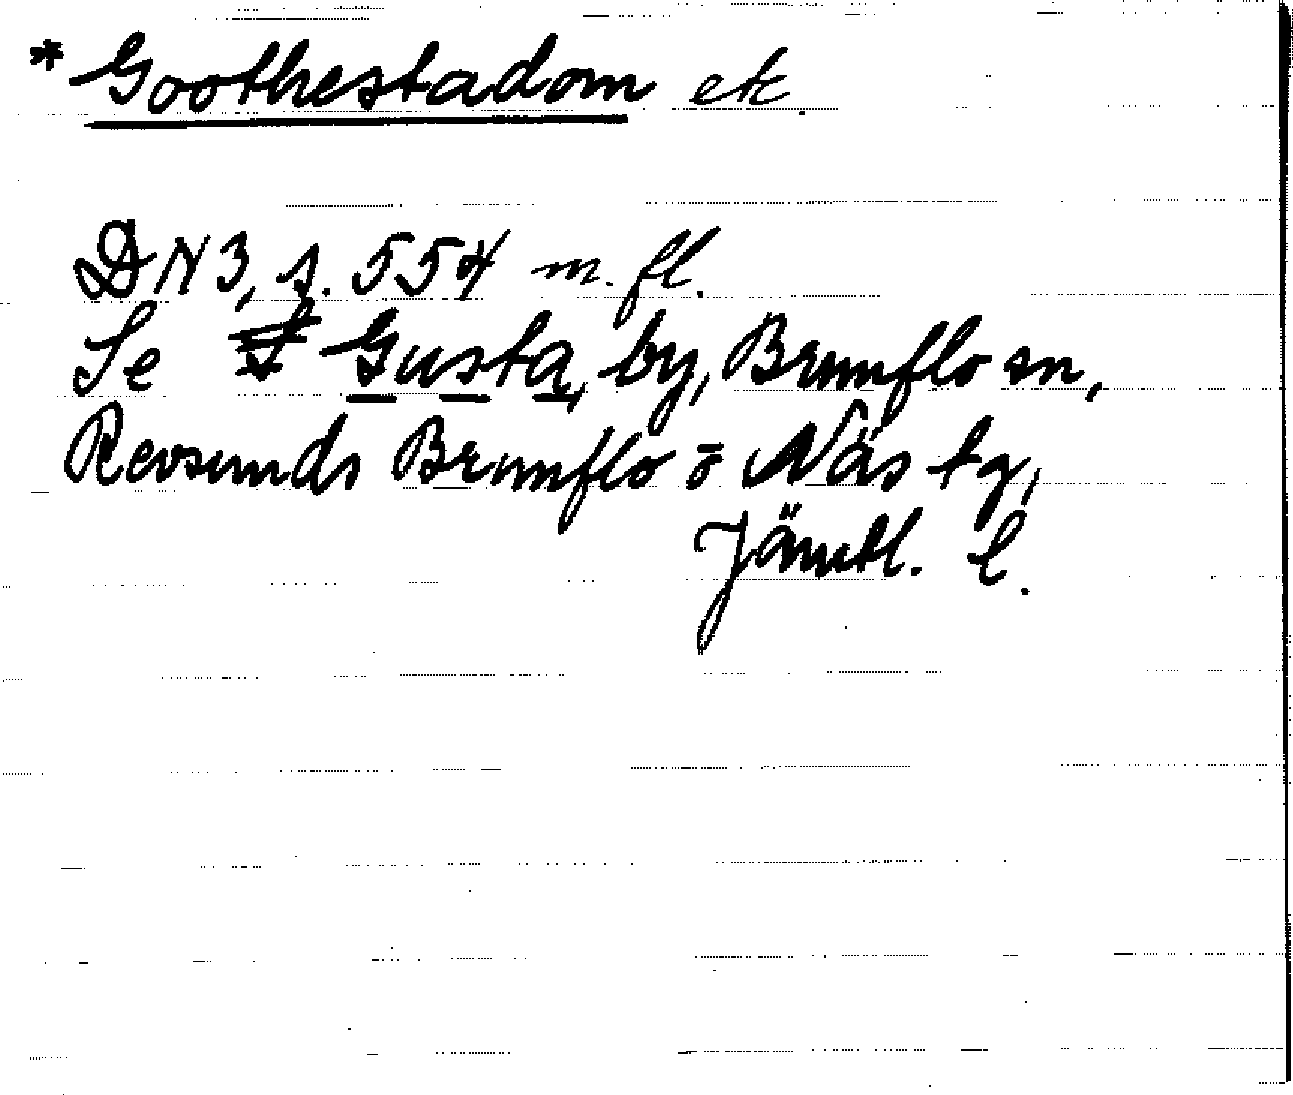 * Goothestadom etc.
DN 3, s. 554 m. fl.
Se Gusta, by, Brunflo sn,
Revsunds Brunflo o Näs tg,
Jämtl. l.